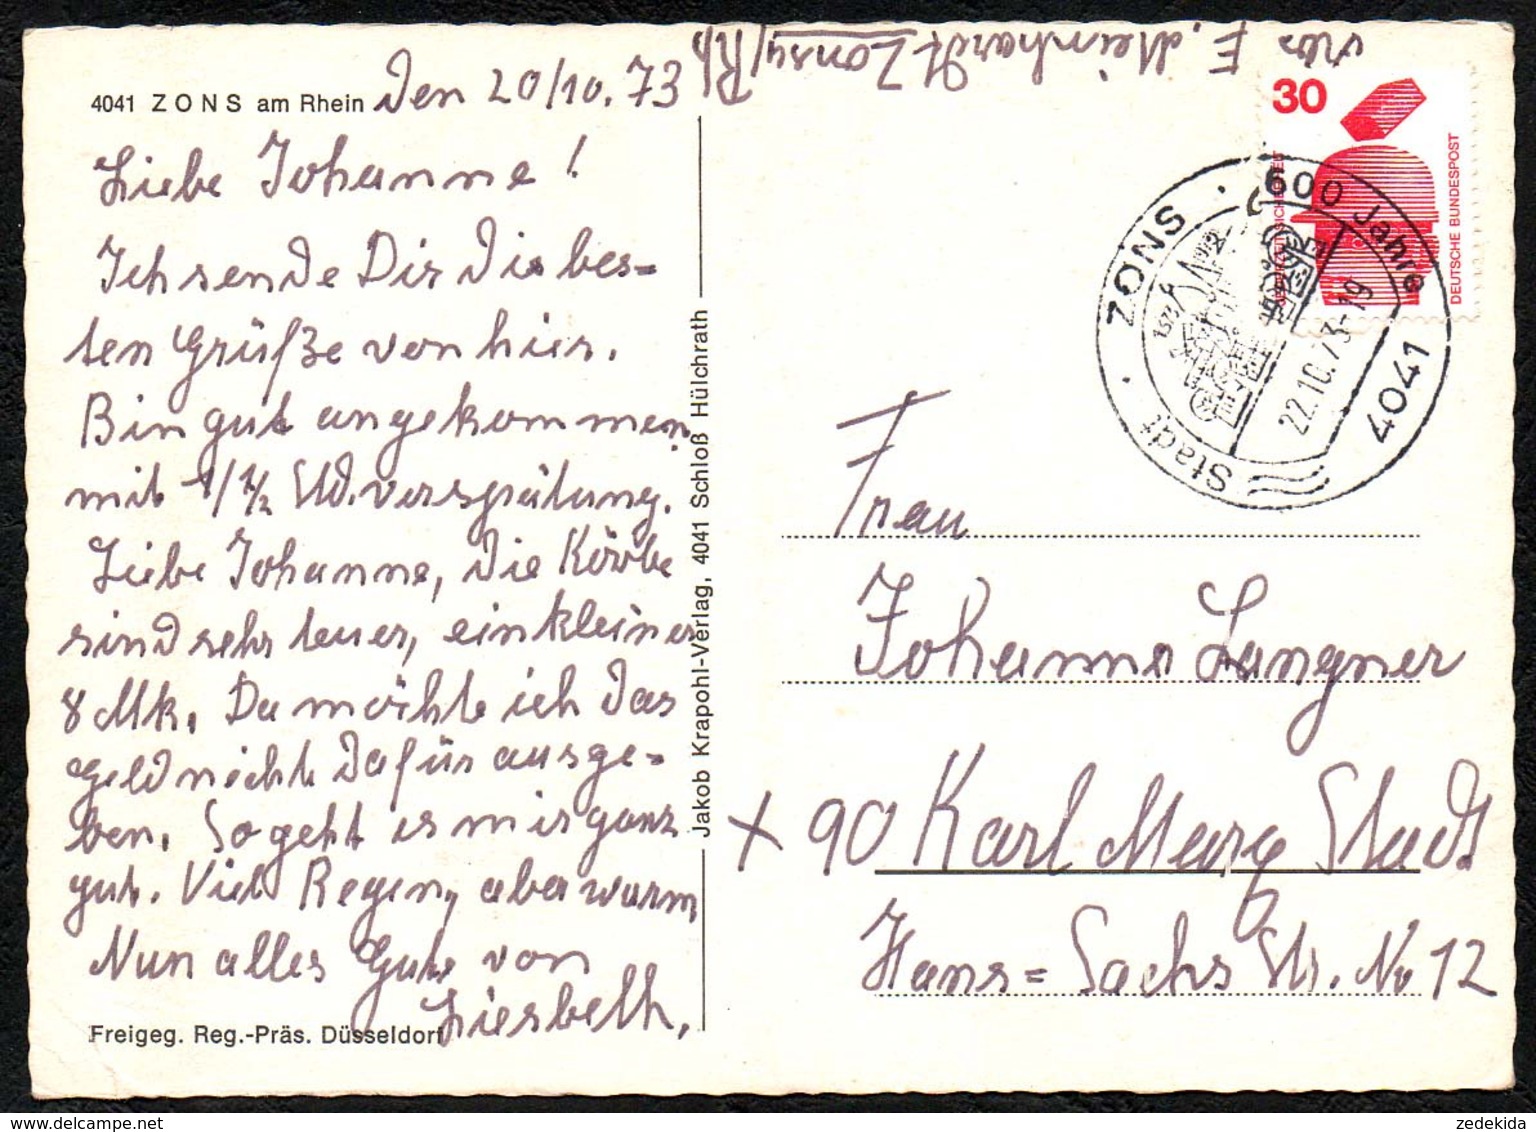 4041 ZONS am Rhein Den 20/10.73
Liebe Johanne!
Ich sende Dir die bes=
ten Grüße von hier.
Bin gut angekommen
mit 1/½ Std. verspätung.
Liebe Johanne, die Körbe
sind sehr teuer, ein kleiner
8 Mk. Da möchte ich das
geld nicht dafür ausge=
ben. So geht es mir ganz
gut. Viel Regen, aber warm
Nun alles Gute von
Liesbeth,
Freigeg. Reg.-Präs. Düsseldorf
Jakob Krapohl-Verlag, 4041 Schloß Hülchrath
E. Meinhardt Zons/Rh
30
DEUTSCHE BUNDESPOST
ZONS · 600 Jahre
Stadt
4041
22.10.73-19
Frau
Johanna Langner
X 90 Karl Marx Stadt
Hans=Sachs Str. No 12
zedekida